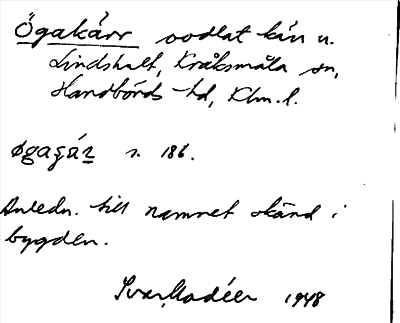 Ögakärr oodlat kärr u.
Lindshult, Kråksmåla sn,
Handbörds hd, Klm. l.
øgaʂár s. 186.
Anledn. till namnet okänd i
bygden.
Ivar Modéer 1948